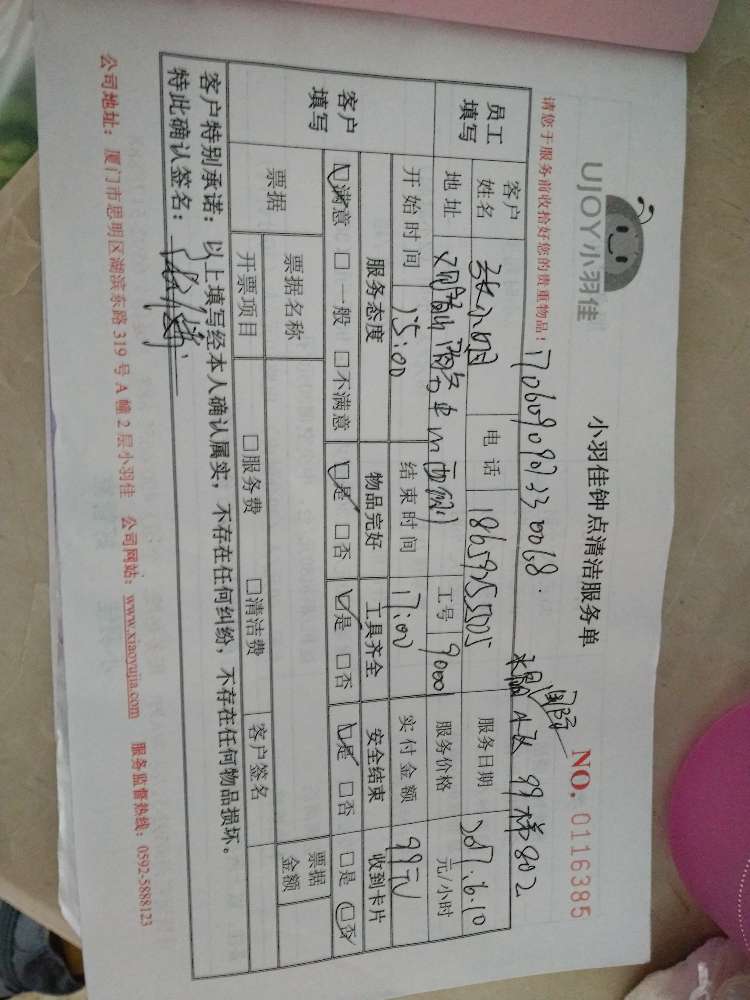 UJOY小羽佳
小羽佳钟点清洁服务单
NO. 0116385
请您于服务前收拾好您的贵重物品！
员工填写 客户姓名 张小姐 电话 18659255505 服务日期 2017.6.10
地址 工号 9000 服务价格 元/小时
客户填写 开始时间 15:00 结束时间 17:00 实付金额 99元
服务态度 物品完好 工具齐全 安全结束 收到卡片
☑满意 □一般 □不满意 ☑是 □否 ☑是 □否 ☑是 □否 □是 ☑否
票据 票据名称 票据金额
开票项目 □服务费 □清洁费 客户签名
客户特别承诺：以上填写经本人确认属实，不存在任何纠纷，不存在任何物品损坏。
特此确认签名：
公司地址：厦门市思明区湖滨东路 319 号 A 幢 2 层小羽佳 公司网站：www.xiaoyujia.com 服务监督热线：0592-5888123